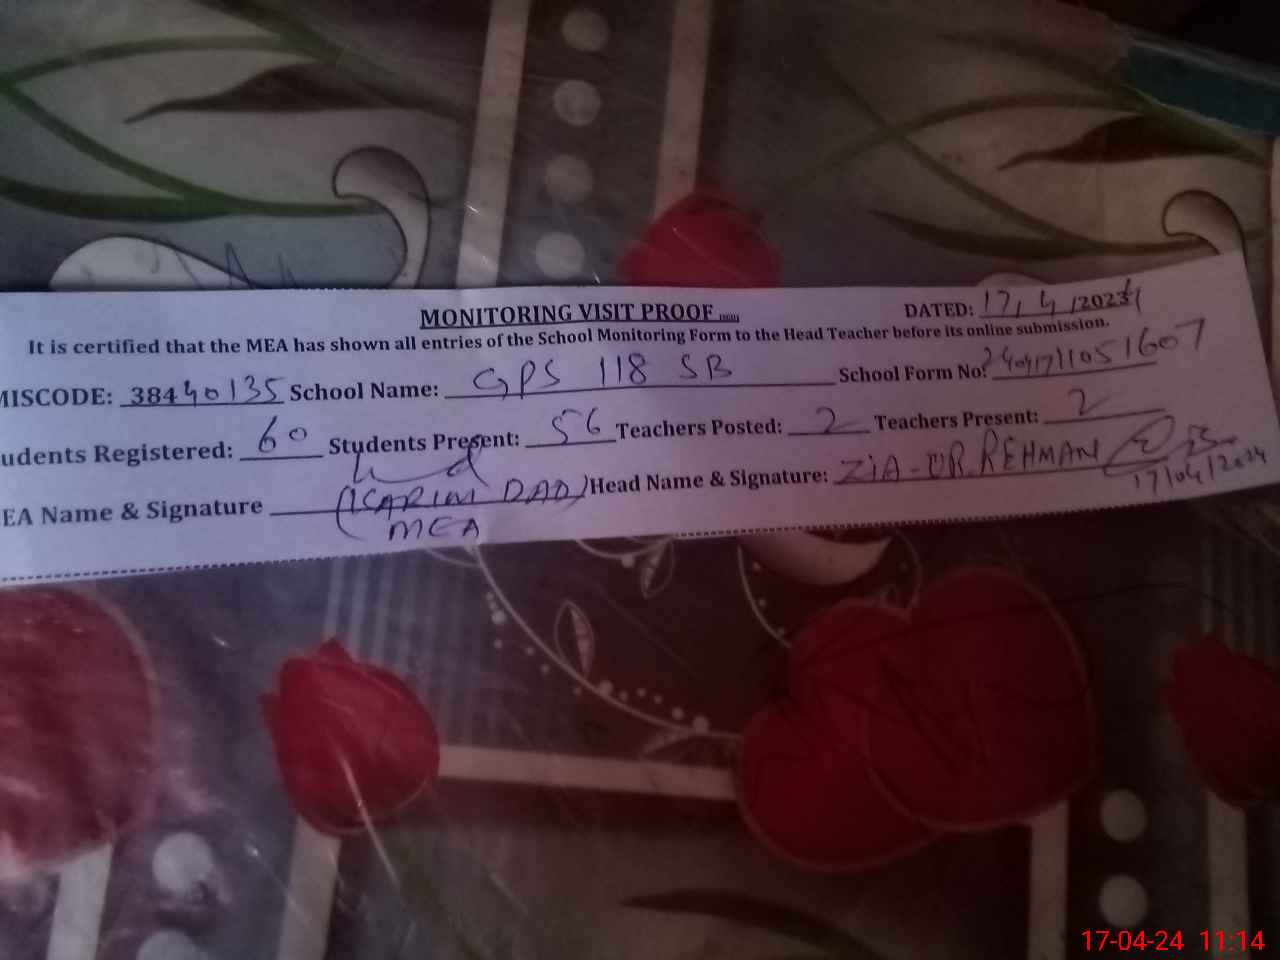 MONITORING VISIT PROOF DATED: 17/4/2024
It is certified that the MEA has shown all entries of the School Monitoring Form to the Head Teacher before its online submission.
MISCODE: 38440135 School Name: GPS 118 SB School Form No: 24041711051607
udents Registered: 60 Students Present: 56 Teachers Posted: 2 Teachers Present: 2
EA Name & Signature (KARIM DAD) Head Name & Signature: ZIA-UR.REHMAN
MEA 17/04/2024
17-04-24 11:14